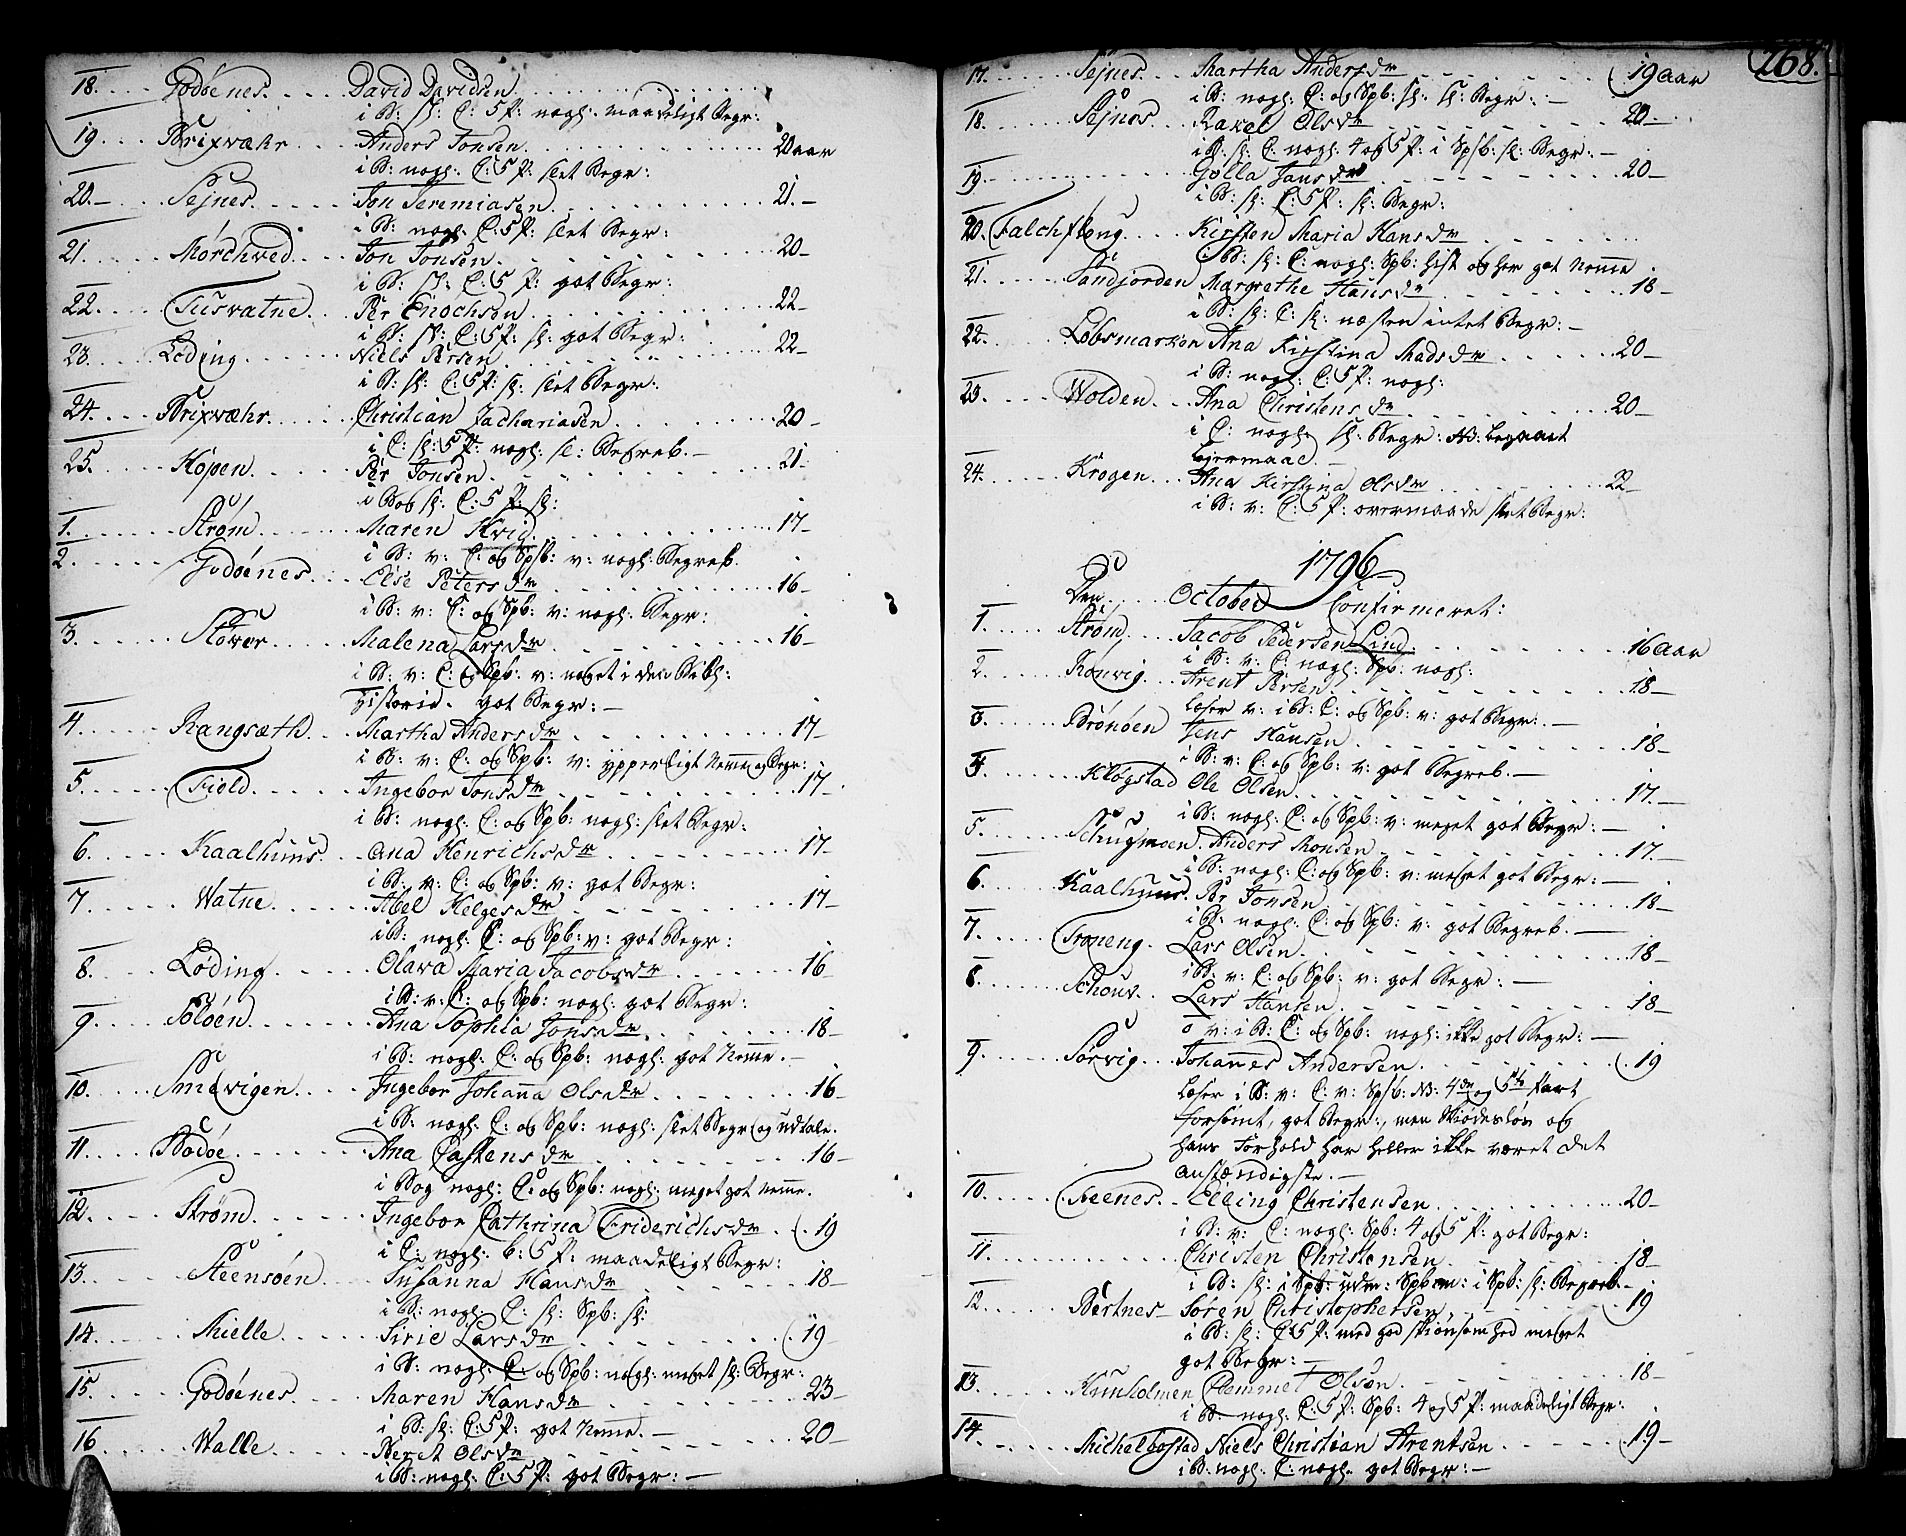 18. Godøenes. David Davidsen
i B: sl: C: 5 P: nogl. maadeligt Begr:
19. Brixvæhr Anders Jonsen 20 aar
i B: nogl: C: 5 P: slet Begr:
20. Sejnes. Jon Jeremiasen 21.
i B: nogl: C: 5 P: slet Begr:
21. Mørchved Jon Jonsen 20
i B: sl: C: 5 P: got Begr:
22. Tusvatne. Per Enochsen 22
i B: sl: C: 5 P: sl: got Begr:
23. Løding Niels Persen 22
i B: sl: C: 5 P: sl: slet Begr:
24. Brixvæhr. Christian Zachariasen 20
i C: sl: 5 P: nogl: sl: Begreb.
25. Hopen. Per Jonsen 21
i Bog sl: C: 5 P: sl:
1. Strøm Maren Hvid 17
i B: v: C: og Spb: v: nogl: Begreb.
2. Godøenes. Else Petersdr 16
i B: v: C: og Spb: v: nogl. Begr:
3. Støver Malena Larsdr 16
i B: v: C: og Spb: v: noget i den Bibl:
Historie. got Begr:
4. Rangsæth Martha Andersdr 17
i B: v: C: og Spb: v: ypperligt Nemme og Begr:
5. Field Ingebor Jonsdr 17
i B: nogl: C: og Spb: nogl: slet Begr:
6. Kaalhuus. Ana Henrichsdr 17
i B: v: C: og Spb: v: got Begr:
7. Watne Abel Helgesdr 17
i B: nogl: C: og Spb: v: got Begr:
8. Løding Olava Maria Jacobsdr 16
i B: v: C: og Spb: nogl: got Begr:
9. Soløen Ana Sophia Jonsdr 18
i B: nogl: C: og Spb: nogl: got Nemme.
10. Smedvigen Ingebor Johanna Olsdr 16
i B: nogl: C: og Spb: nogl: slet Begr og udtale.
11. Bodøe Ana Castensdr 16
i Bog nogl: C: og Spb: nogl: meget got Nemme.
12. Strøm Ingebor Cathrina Friderichsdr 19
i C: nogl: b: 5 P: maadeligt Begr:
13. Steensøen Susanna Hansdr 18
i B: nogl: C: sl: Spb: sl:
14. Mielle Sirie Larsdr 19
i B: nogl: C: og Spb: nogl: meget sl: Begr:
15. Godøenes Maren Hansdr 23
i B: sl: C: 5 P: got Nemme.
16 Walle Beret Olsdr 20
i B: nogl: C: 5 P: got Begr:
268.
17. Sejnes Martha Andersdr 19 aar
i B: nogl: C: og Spb: sl: sl: Begr:
18. Sejnes Rakel Olsdr 20
i B: sl: C: nogl: 4 og 5 P: i Spb: sl: Begr:
19. Golla Jansdr 20
i B: sl: C: 5 P: sl: Begr:
20. Falchfleng Kirsten Maria Hansdr
i B: sl: C: nogl: Spb: hist og her got Nemme
21. Sandjorden Margrethe Hansdr 18
i B: sl: C: sl: næsten intet Begr:
22. Løbsmarken Ana Kirstina Madsdr 20
i B: nogl: C: 5 P: nogl:
23. Wolden Ana Christensdr 20
i C: nogl: sl: Begr: NB: begaaet
Lejermaal.
24. Krogen Ana Kirstina Olsdr 22
i B: v: C: 5 P: overmaade slet Begr:
1796
Den October Confirmeret:
1. Strøm Jacob Pedersen Lind 16 aar
i B: v: C: nogl: Spb: nogl:
2. Rønvig Arent Persen 18
læser v: i B: C: og Spb: v: got Begr:
3. Brønøen Jens Hansen 18
i B: v: C: og Spb: v: got Begreb.
4. Kløgstad Ole Olsen 17.
i B: nogl: C: og Spb: v: meget got Begr:
5. Schugmoen. Anders Monsen 17.
i B: nogl: C: og Spb: v: meget got Begr:
6. Kaalhuus. Per Jonsen 18
i B: nogl: C: og Spb: v: got Begreb.
7. Troneng. Lars Olsen 18
i B: v: C: og Spb: v: got Begr:
8. Schouv. Lars Hansen 18
v: i B: C: og Spb: nogl: ikke got Begr:
9. Sørvig Johannes Andersen 19
læser i B: v: C: v: Spb: NB: 4de og 5te Part
forsømt, got Begr:, men Skiødesløs og
hans Forhold har heller ikke været det
anstændigste.
10. Steenes. Elling Christensen 20
i B: v: C: nogl: Spb: 4 og 5 P: got Begr:
11. Christen Christensen 18
i B: sl: i Spb: udm: i Spb: sl: Begreb.
12. Bertnes Søren Christophersen 19
i B: sl: C: 5 P: med god skiønsomhed meget
got Begr:
13. Hunholmen Clemmet Olsen 18
i B: nogl: C: 5 P: Spb: 4 og 5 P: maadeligt Begr:
14. Michelbostad Niels Christian Arentsen 19
i B: nogl: C: nogl. got Begr: